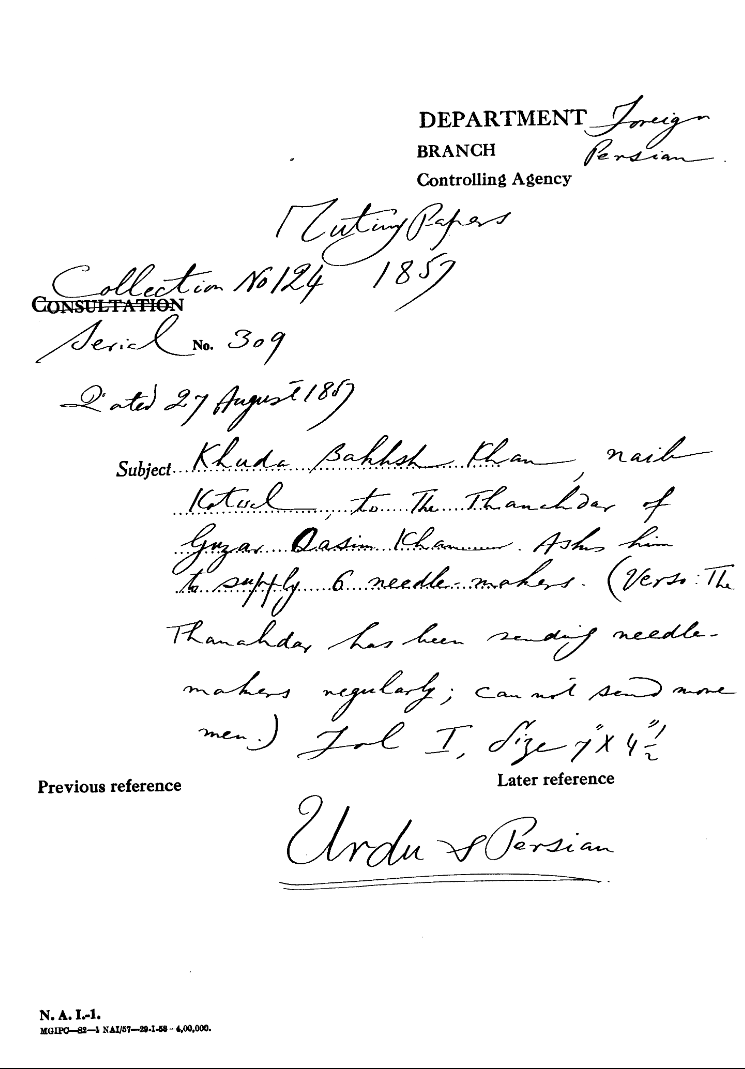 DEPARTMENT Foreign
BRANCH Persian.
Controlling Agency
Mutiny Papers
Collection No 124 1857
CONSULTATION
Serial No. 309
Dated 27 August 1857
Subject Khuda Bakhsh Khan, naib
Kotwal, to the Thanahdar of
Guzar Qasim Khan. Asks him
to supply 6 needle-makers. (Verso: The
Thanahdar has been sending needle-
makers regularly; can not send more
men.) Fol I, Size 7" X 4 1/2"
Previous reference
Later reference
Urdu & Persian
N. A. I.-1.
MGIPC—S2—1 NAI/57—29-1-58—4,00,000.